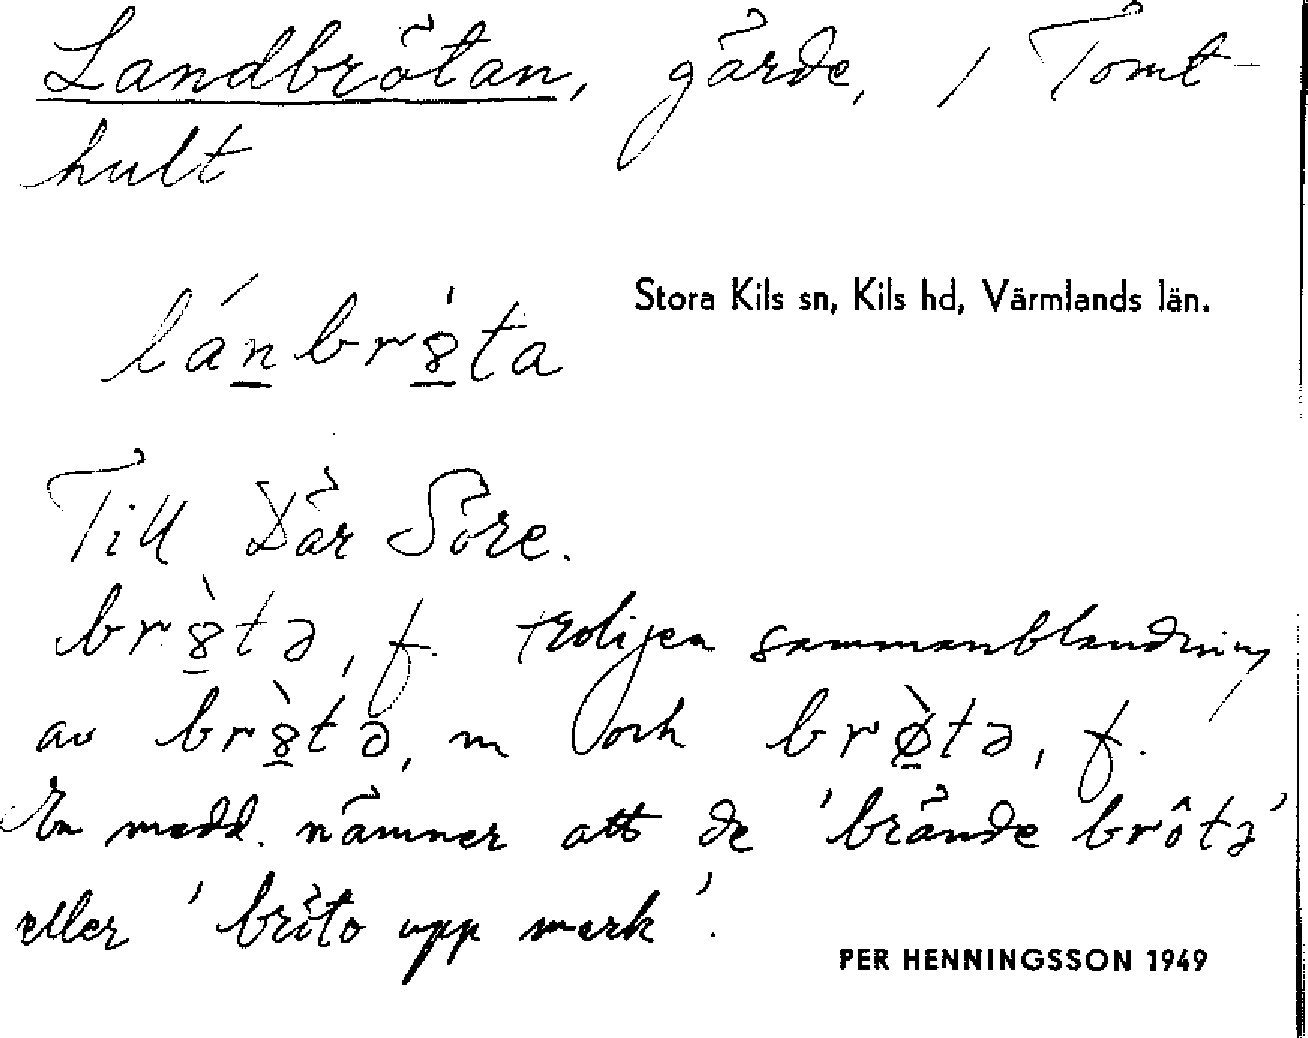 Landbrötan, gärde, i Tomt-
hult
Stora Kils sn, Kils hd, Värmlands län.
lánbrȣ̍ta
Till Där Söre.
brȣ̀tə, f. troligen sammanblandning
av brȣ̀tə, m och brø̀tə, f.
En medd. nämner att de 'brände brôtə'
eller ' bröto upp mark'.
PER HENNINGSSON 1949